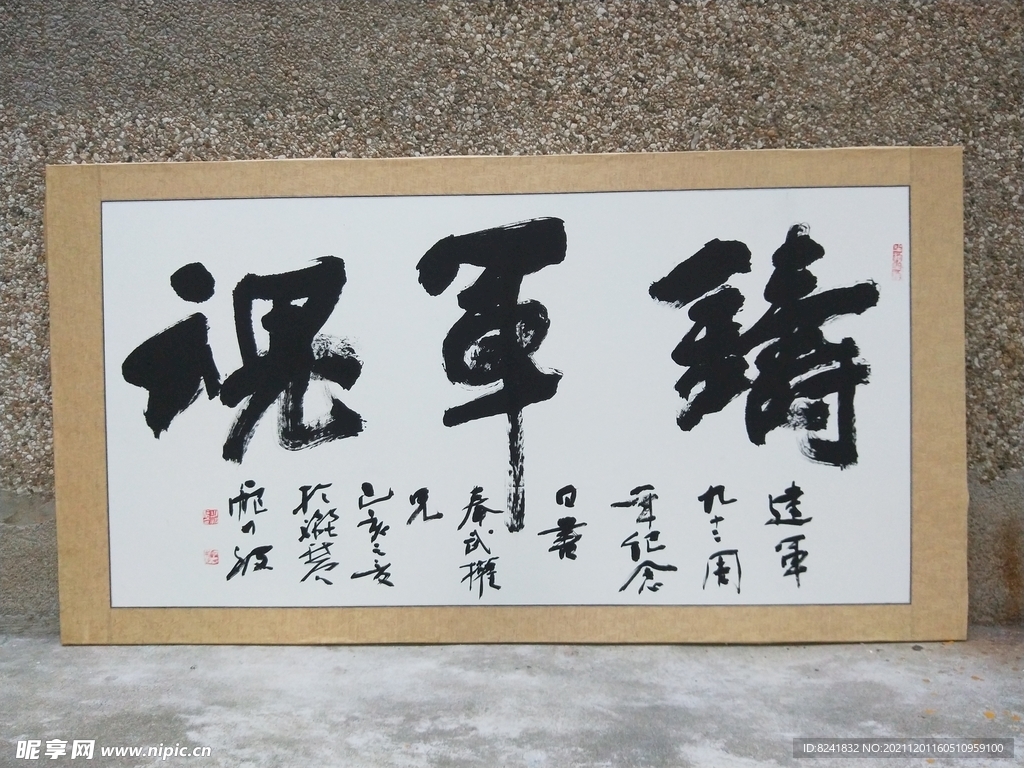 鑄軍魂
建軍
九十二周
年紀念
日書
奉武權
兄
己亥之夏
昵享网 www.nipic.cn
ID:8241832 NO:20211201160510959100